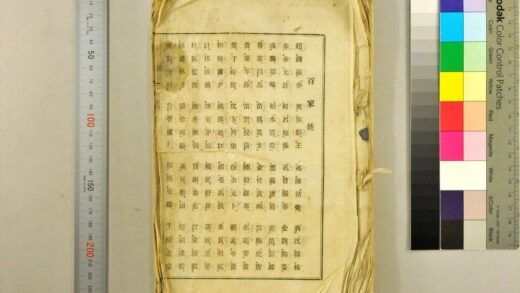 百家姓
趙錢孫李 周吳鄭王 馮陳褚衛 蔣沈韓楊
朱秦尤許 何呂施張 孔曹嚴華 金魏陶姜
戚謝鄒喻 柏水竇章 雲蘇潘葛 奚范彭郎
魯韋昌馬 苗鳳花方 俞任袁柳 酆鮑史唐
費廉岑薛 雷賀倪湯 滕殷羅畢 郝鄔安常
樂于時傅 皮卞齊康 伍余元卜 顧孟平黃
和穆蕭尹 姚邵湛汪 祁毛禹狄 米貝明臧
計伏成戴 談宋茅龐 熊紀舒屈 項祝董梁
杜阮藍閔 席季麻強 賈路婁危 江童顏郭
高夏蔡田 樊胡凌霍
管盧莫
50
100
150
200
Kodak Color Control Patches
Blue
Cyan
Green
Yellow
Red
Magenta
White
3/Color
Black